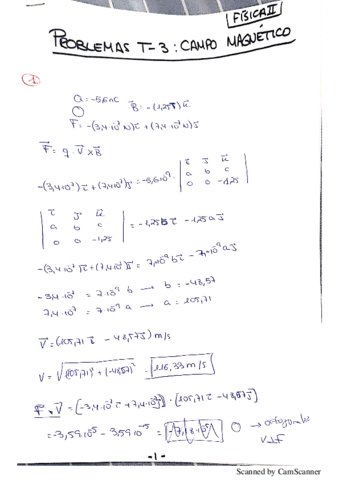 FÍSICA II
PROBLEMAS T-3: CAMPO MAGNÉTICO
Q = -5,6nC B⃗ = -(1,25T)k⃗
F⃗ = -(3,4·10⁻⁷N)i⃗ + (7,4·10⁻⁷N)j⃗
F⃗ = q·V⃗×B⃗
-(3,4·10⁻⁷)i⃗ + (7,4·10⁻⁷)j⃗ = -5,6·10⁻⁹ · | i⃗ j⃗ k⃗ |
| a b c |
| 0 0 -1,25 |
| i⃗ j⃗ k⃗ |
| a b c | = -1,25b i⃗ -1,25a j⃗
| 0 0 -1,25 |
-(3,4·10⁻⁷)i⃗ + (7,4·10⁻⁷)j⃗ = 7·10⁻⁹ b i⃗ - 7·10⁻⁹ a j⃗
-3,4·10⁻⁷ = 7·10⁻⁹ b → b = -48,57
7,4·10⁻⁷ = 7·10⁻⁹ a → a = 105,71
V⃗ = (105,71 i⃗ - 48,57 j⃗) m/s
V = √(105,71)² + (-48,57)² = 116,33 m/s
F⃗ · V⃗ = (-3,4·10⁻⁷ i⃗ + 7,4·10⁻⁷ j⃗) · (105,71 i⃗ - 48,57 j⃗)
= -3,59·10⁻⁵ - 3,59·10⁻⁵ = 0 →
V⊥F
-1-
Scanned by CamScanner